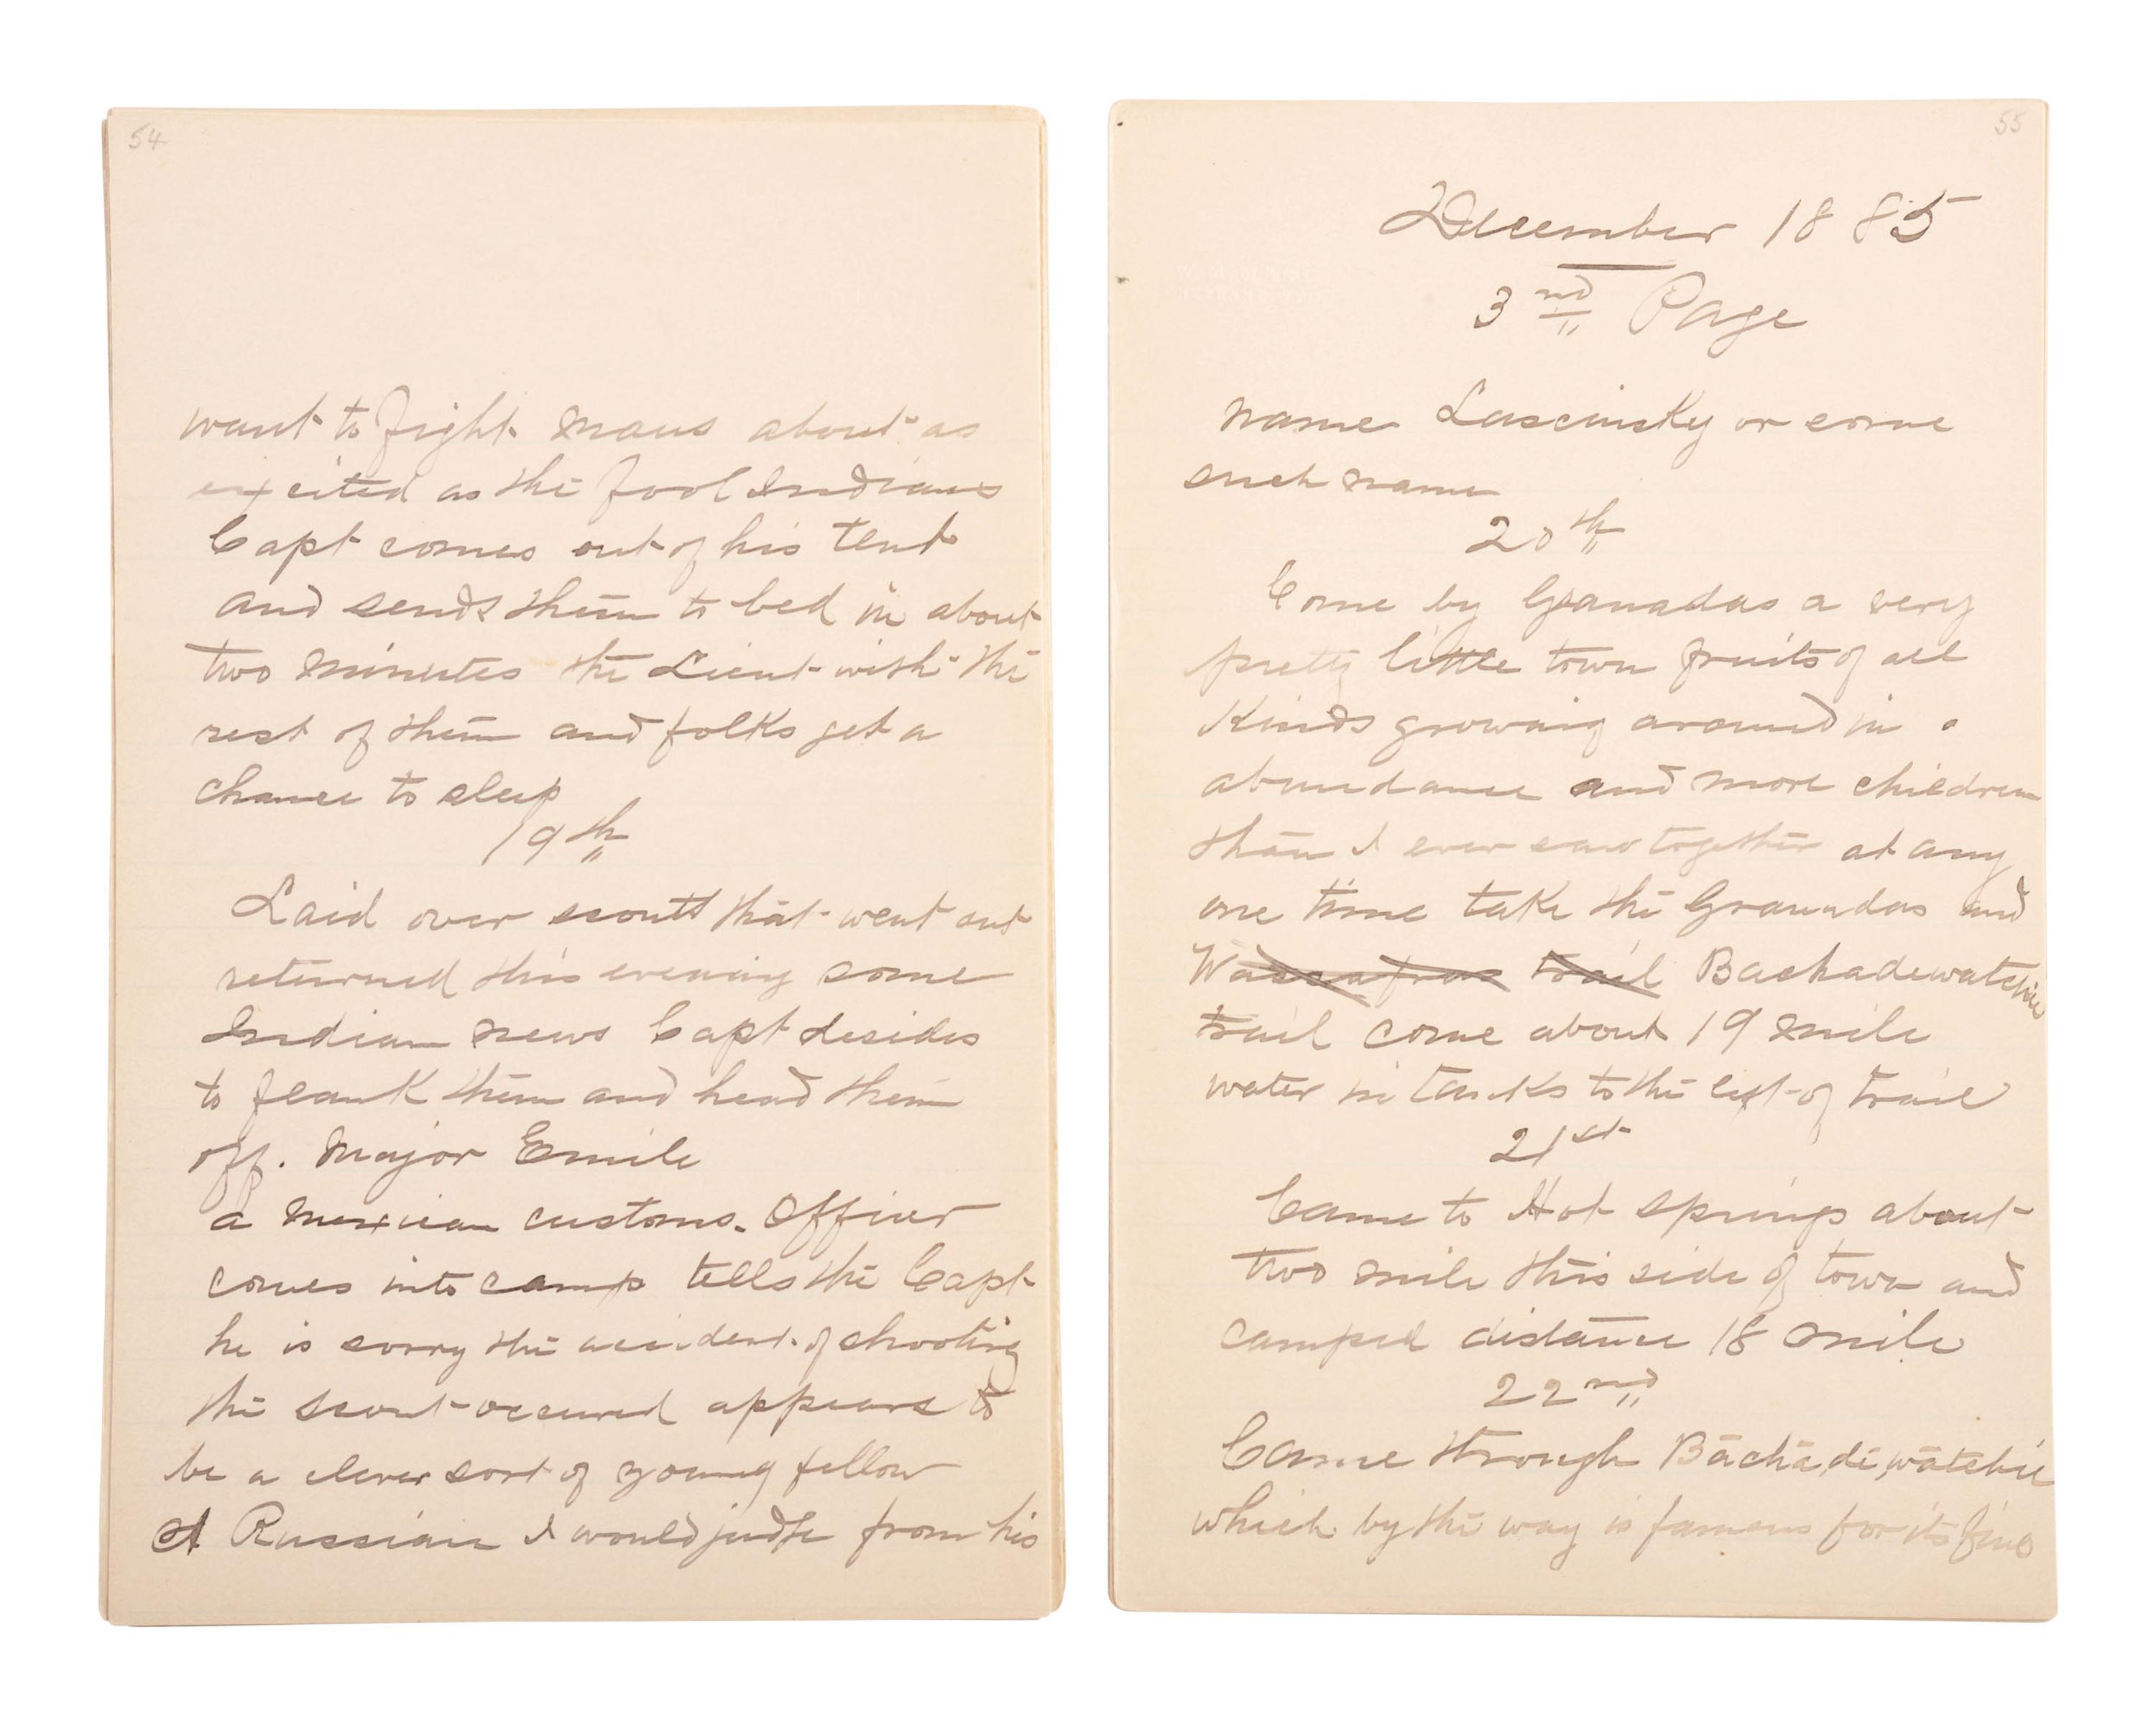 54
want to fight Maus about as
excited as the fool Indians
Capt comes out of his tent
and sends them to bed in about
two minutes the Lieut with the
rest of them and folks get a
chance to sleep
19th
Laid over scouts that went out
returned this evening some
Indian news Capt desides
to flank them and head them
off. Major Emile
a Mexican customs officer
comes into camp tells the Capt
he is sorry the accident of shooting
the scout occured appears to
be a clever sort of young fellow
A Russian I would judge from his
55
December 1885
3nd Page
name Lascinsky or some
such name
20th
Come by Granadas a very
pretty little town fruits of all
kinds growing around in a
abundance and more children
than I ever saw together at any
one time take the Granadas and
trail Bachadewatchie
trail come about 19 mile
water in tanks to the left of trail
21st
Came to Hot springs about
two mile this side of town and
camped distance 18 mile
22nd
Came through Bachadewatchie
which by the way is famous for its fine